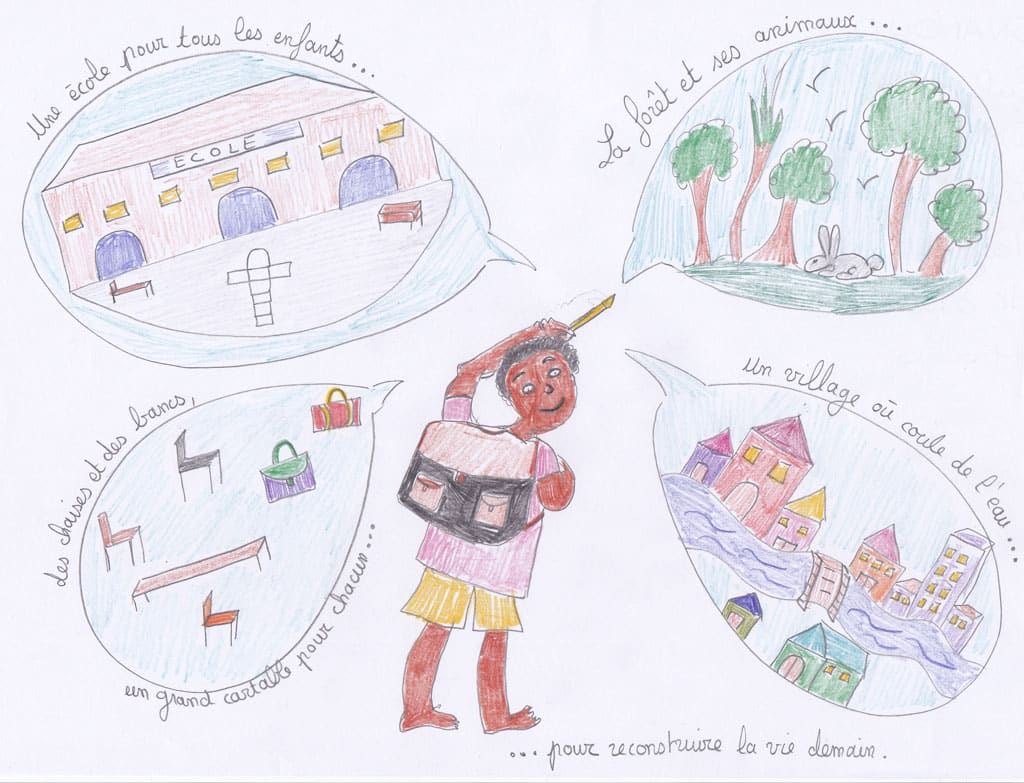 Une école pour tous les enfants...
ECOLE
La forêt et ses animaux...
des chaises et des bancs,
un grand cartable pour chacun...
Un village où coule de l'eau...
... pour reconstruire la vie demain.